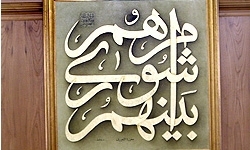 و امرهم
شوری
بینهم